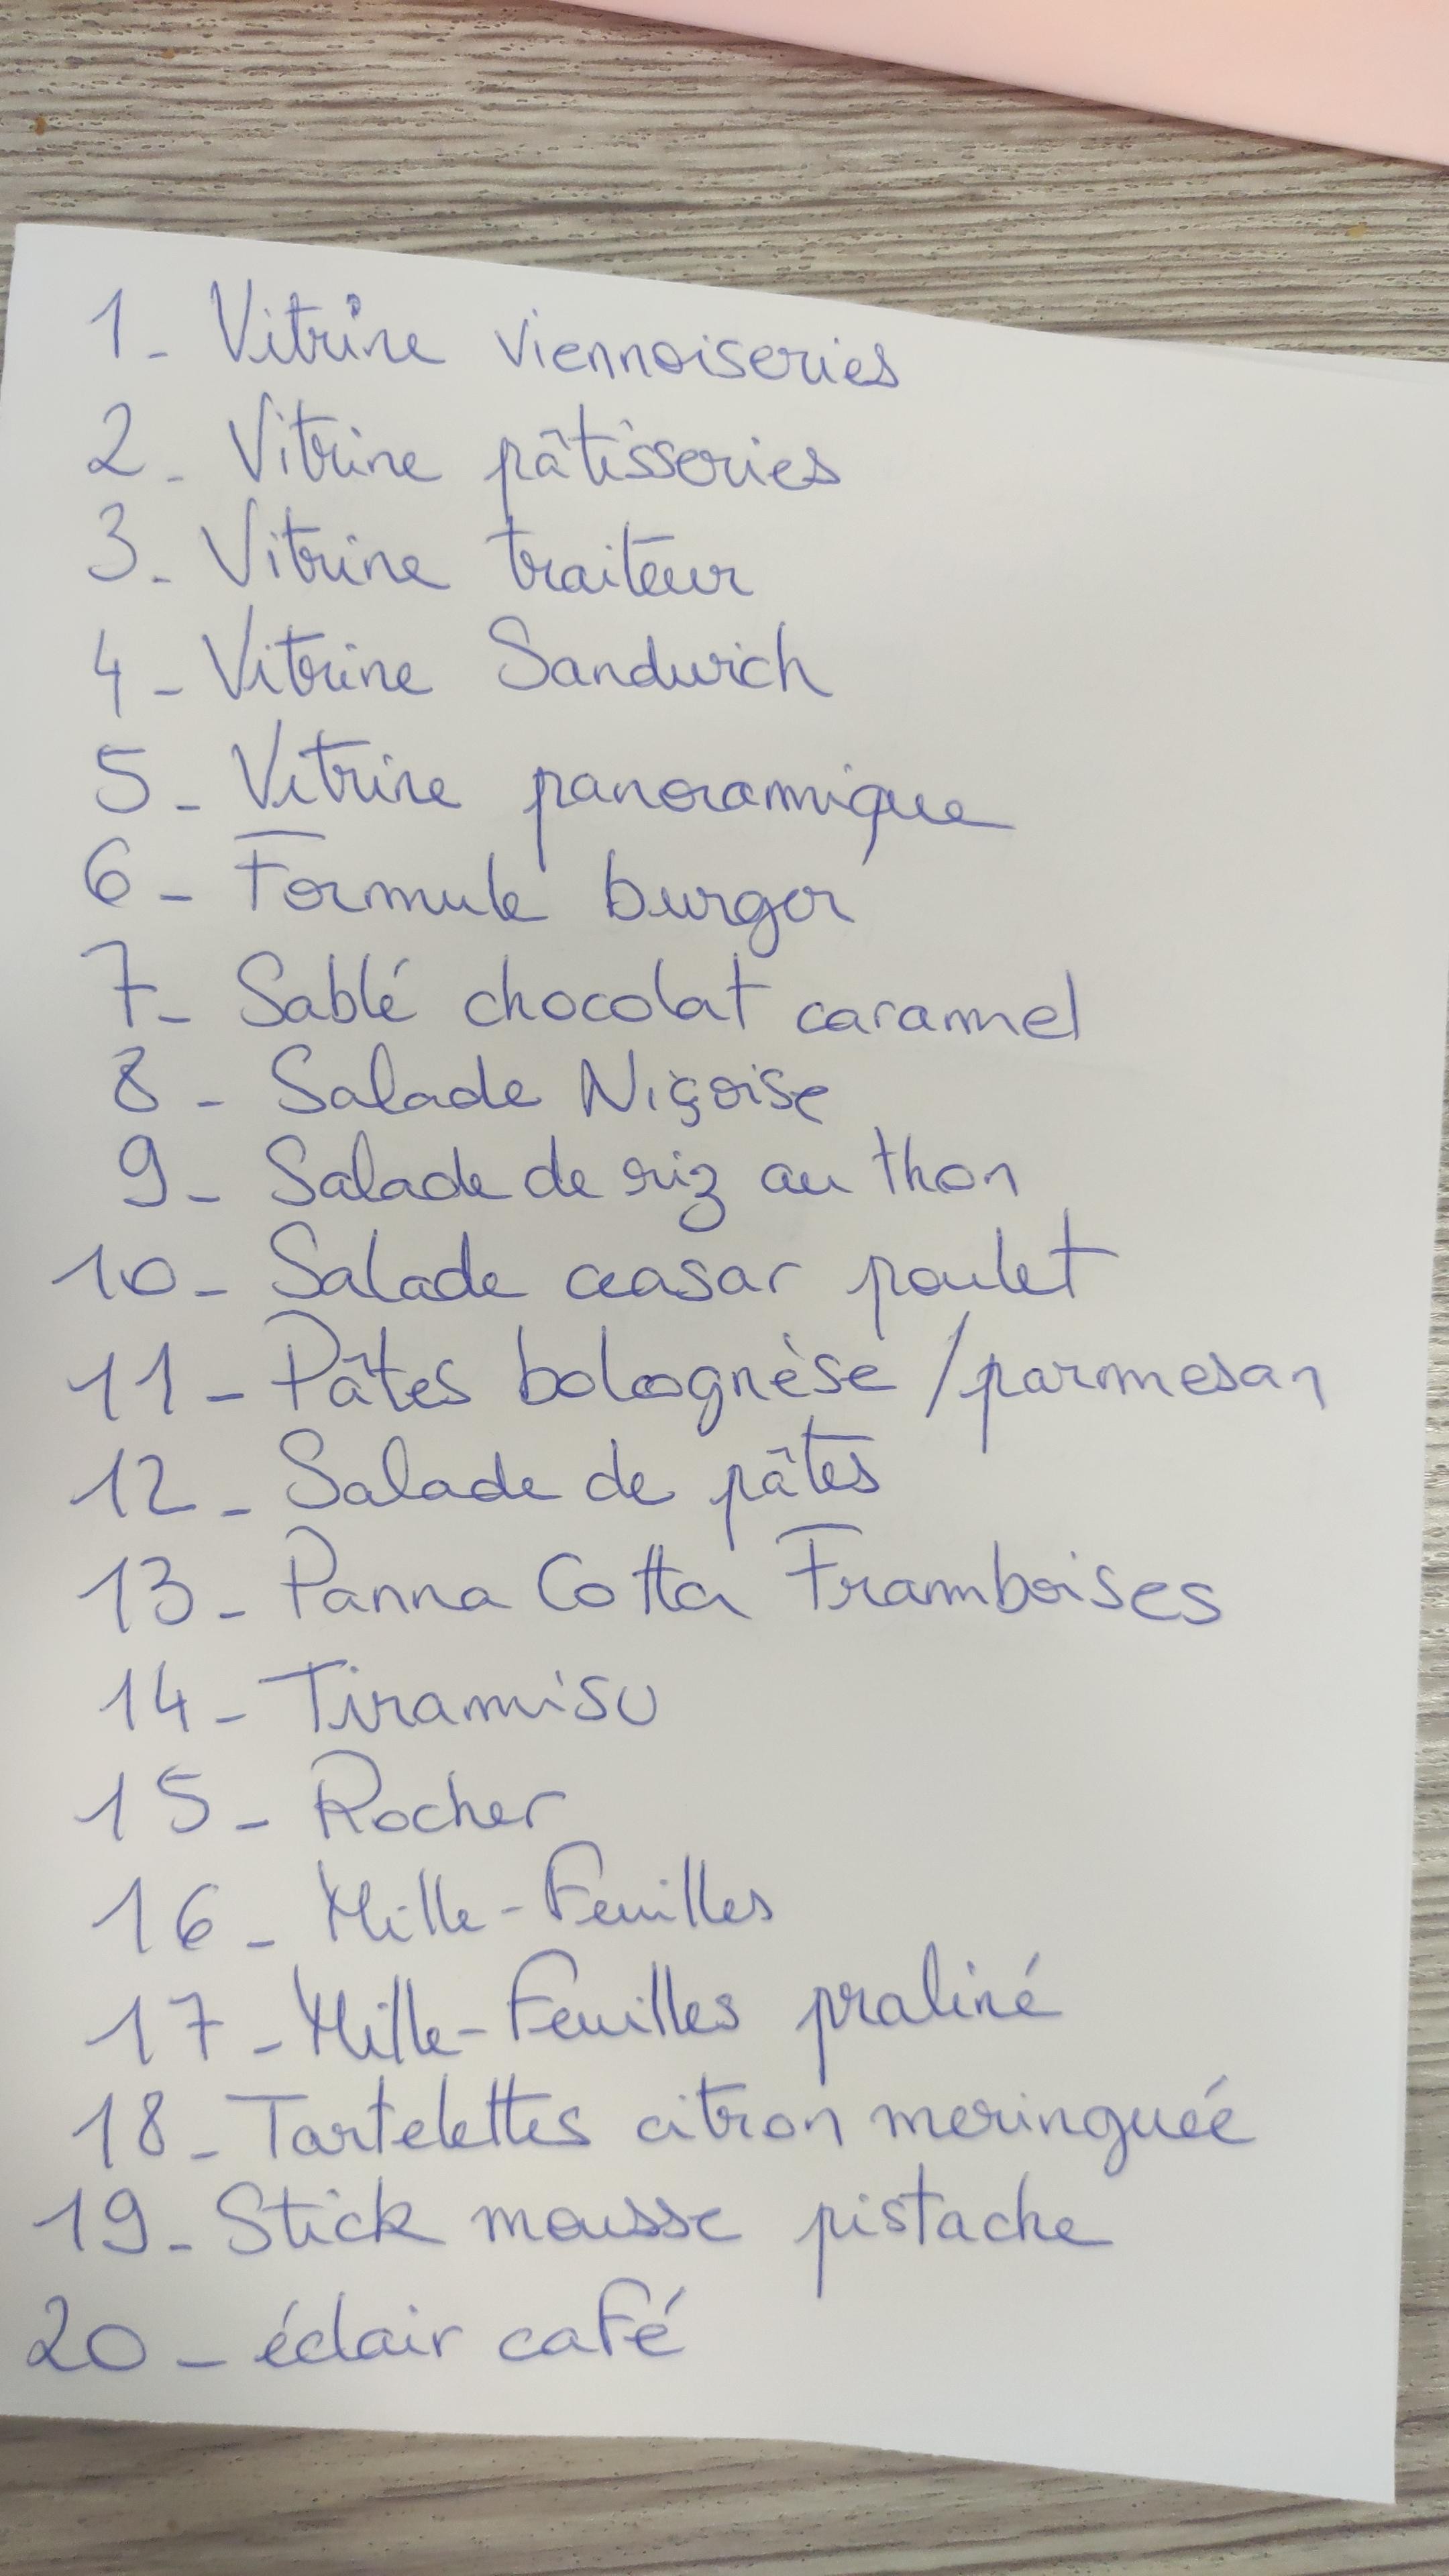 1- Vitrine viennoiseries
2- Vitrine pâtisseries
3- Vitrine traiteur
4- Vitrine Sandwich
5- Vitrine panoramique
6- Formule burger
7- Sablé chocolat caramel
8- Salade Niçoise
9- Salade de riz au thon
10- Salade ceasar poulet
11- Pâtes bolognèse / parmesan
12- Salade de pâtes
13- Panna Cotta Framboises
14- Tiramisu
15- Rocher
16- Mille-Feuilles
17- Mille-Feuilles praliné
18- Tartelettes citron meringuée
19- Stick mousse pistache
20- éclair café